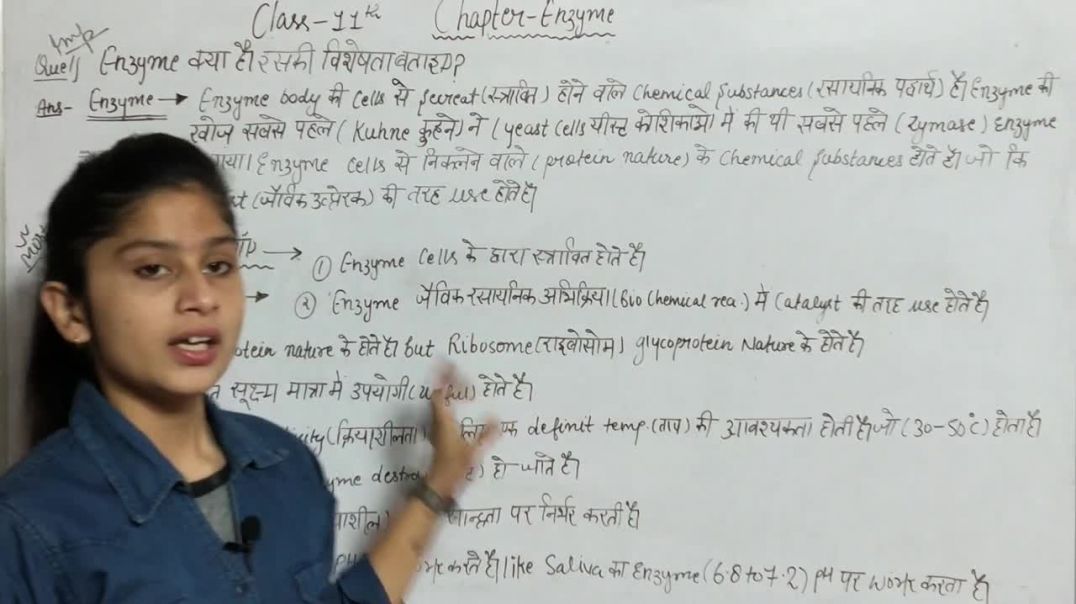 Class-11th Chapter-Enzyme
Imp
Que1 Enzyme क्या है। इसकी विशेषता बताइए?
Ans- Enzyme → Enzyme body की Cells से Secreat (स्त्रावित) होने वाले Chemical Substances (रसायनिक पदार्थ) है। Enzyme की
खोज सबसे पहले (Kuhne कुहने) ने (yeast Cells यीस्ट कोशिकाओ में की थी सबसे पहले (Zymase) Enzyme
गया। Enzyme Cells से निकलने वाले (protein nature) के Chemical Substances होते है। जो कि
st (जैविक उत्प्रेरक) की तरह use होते है।
→ ① Enzyme Cells के द्वारा स्त्रावित होते है।
→ ② Enzyme जैविक रसायनिक अभिक्रिया (Bio Chemical rea.) में Catalyst की तरह use होते है।
otein nature के होते है। But Ribosome (राइबोसोम) glycoprotein Nature के होते है।
सूक्ष्म मात्रा में उपयोगी होते है।
(क्रियाशीलता) definit temp. (ताप) की आवश्यकता होती है। जो (30-50°c) होता है।
yme destro हो जाते है।
पर निर्भर करती है।
करते है। like Saliva का Enzyme (6.8 to 7.2) pH पर work करता है।